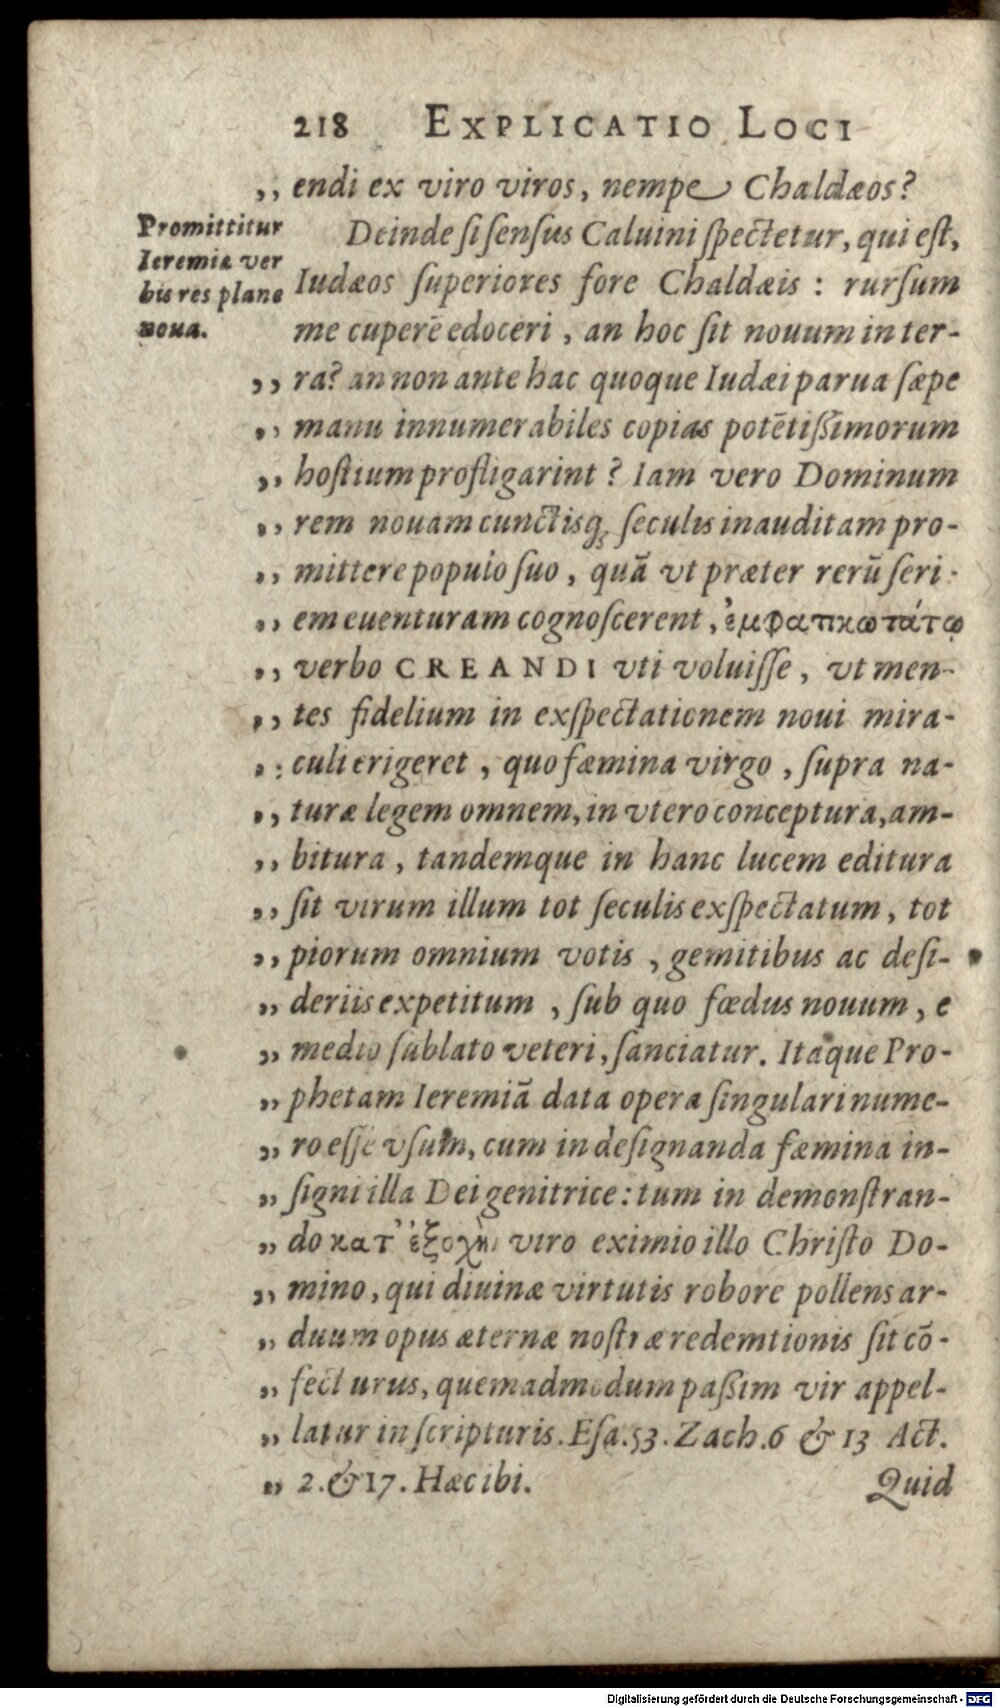 218 EXPLICATIO LOCI
„ endi ex viro viros, nempe Chaldæos?
Promittitur
Ieremiæ ver
bis res plane
noua.
Deinde si sensus Caluini spectetur, qui est,
Iudæos superiores fore Chaldæis : rursum
me cuperē edoceri, an hoc sit nouum in ter-
„ ra? an non ante hac quoque Iudæi parua sæpe
„ manu innumerabiles copias potētißimorum
„ hostium profligarint? Iam vero Dominum
„ rem nouam cunctisq; seculis inauditam pro-
„ mittere populo suo, quā vt præter rerū seri-
„ em euenturam cognoscerent, ἐμφατικωτάτῳ
„ verbo CREANDI vti voluisse, vt men-
„ tes fidelium in exspectationem noui mira-
„ culi erigeret, quo fæmina virgo, supra na-
„ turæ legem omnem, in vtero conceptura, am-
„ bitura, tandemque in hanc lucem editura
„ sit virum illum tot seculis exspectatum, tot
„ piorum omnium votis, gemitibus ac desi-
„ deriis expetitum, sub quo fœdus nouum, e
„ medio sublato veteri, sanciatur. Itaque Pro-
„ phetam Ieremiā data opera singulari nume-
„ ro esse vsum, cum in designanda fæmina in-
„ signi illa Dei genitrice: tum in demonstran-
„ do κατ' ἐξοχὴν viro eximio illo Christo Do-
„ mino, qui diuinæ virtutis robore pollens ar-
„ duum opus æternæ nostræ redemtionis sit cō-
„ fecturus, quemadmodum paßim vir appel-
„ latur in scripturis. Esa.53. Zach.6 & 13 Act.
„ 2.& 17. Hæc ibi.
Quid
Digitalisierung gefördert durch die Deutsche Forschungsgemeinschaft - DFG